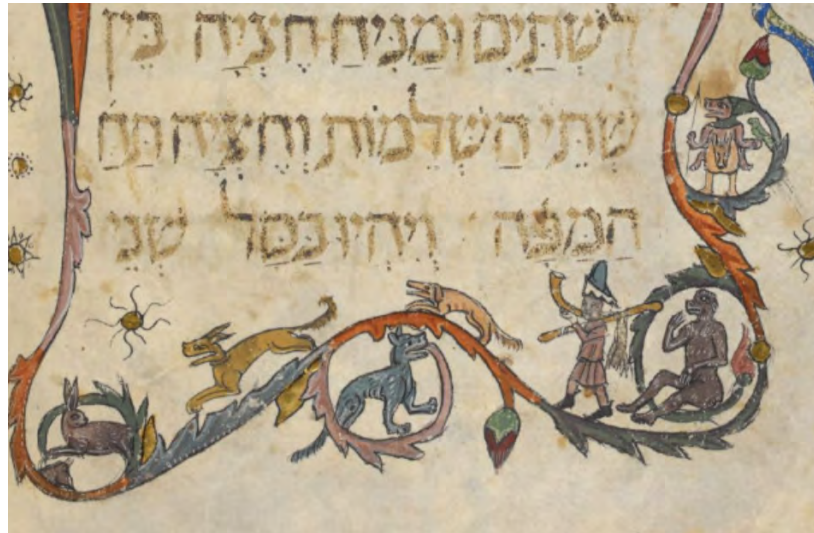 לִשְׁתַּיִם וּמַנִּיחַ חֶצְיָהּ בֵּין
שְׁתֵּי הַשְּׁלֵמוֹת וְחֶצְיָהּ תַּחַ
הַמַּפָּה וְיִהְיוּ בַּסַּל שְׁנֵי